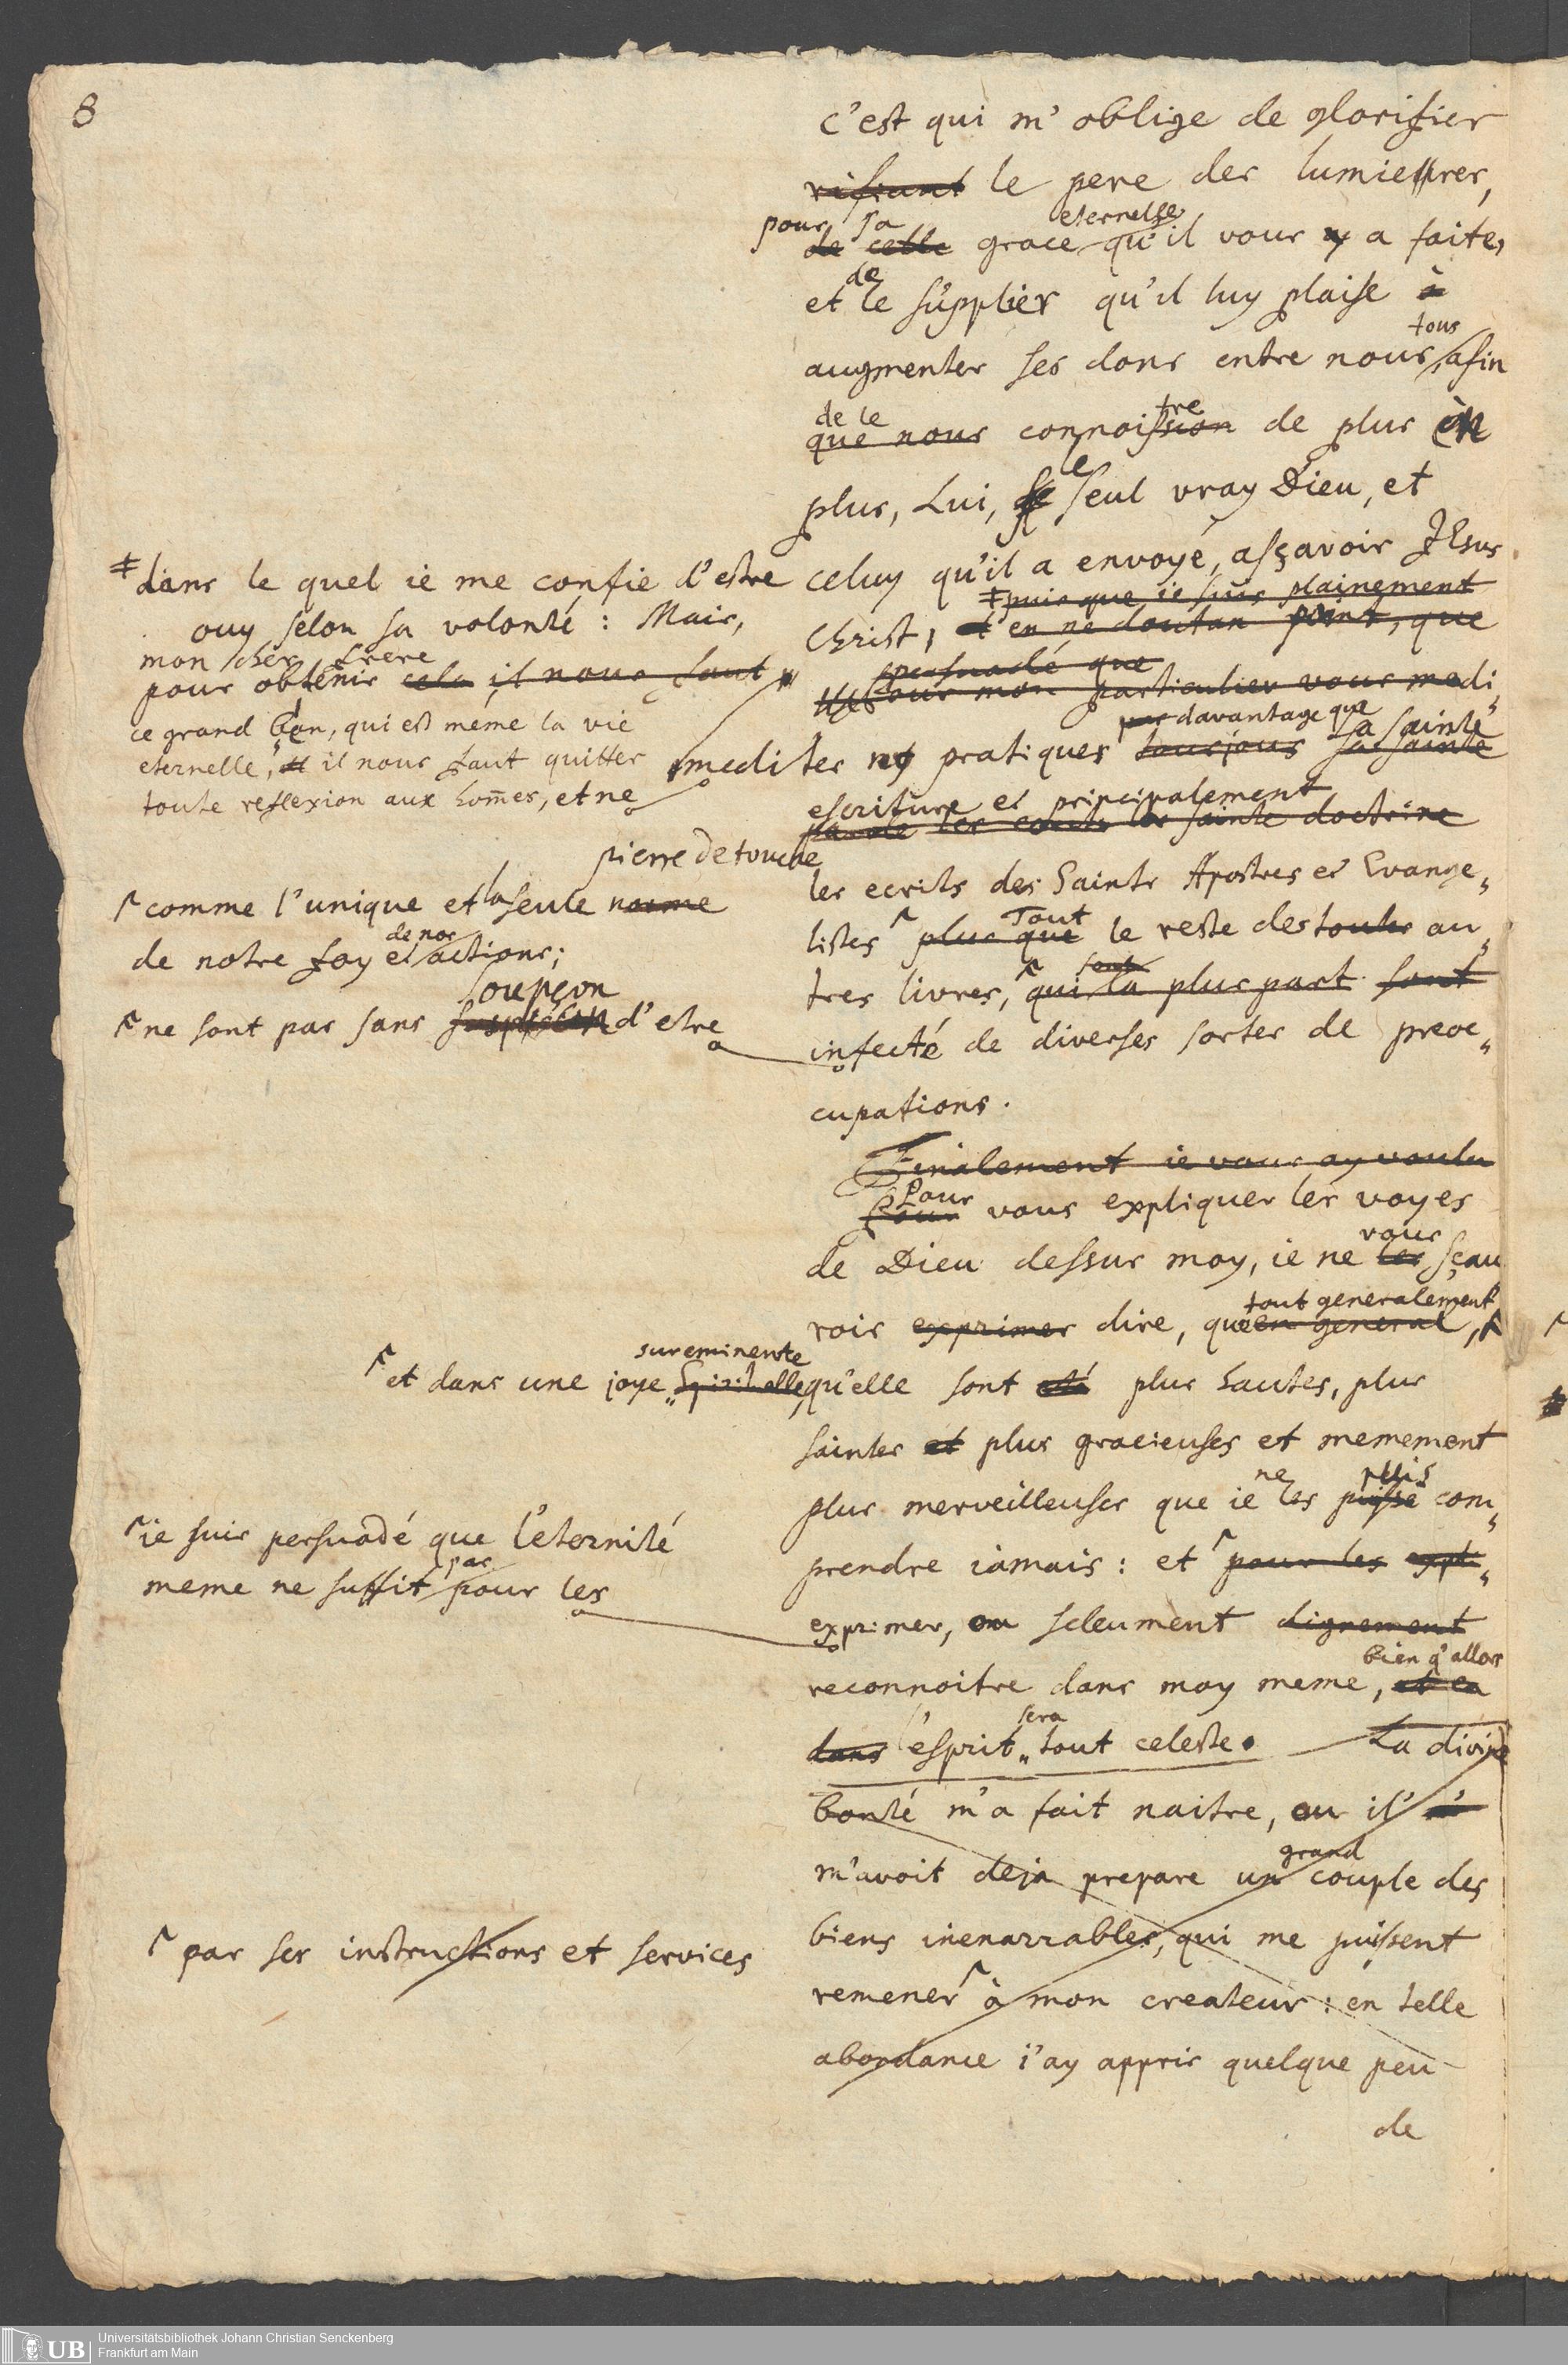 8
c'est qui m'oblige de glorifier
rifiant le pere des lumieres,
pour sa eternelle
de cette grace qu'il vous y a faite,
de
et le supplier qu'il luy plaise à
tous
augmenter ses dons entre nous, afin
de le tre
que nous connoission de plus en
le
plus, Lui, seul vray Dieu, et
celuy qu'il a envoyé, asçavoir JEsus
puis que ie suis plainement
Christ, d'en ne doutan point, que
persuadé que
pour mon particulier vous medi„
pas davantage que sa sainte
mediter ny pratiques tousjours sa sainte
escriture et principalement
parole les sainte doctrine
les ecrits des Saints Apostres et Evange„
Tout
listes plus que le reste des toutes au„
sont
tres livres, qui la plus part sont
infecté de diverses sortes de preoc„
cupations.
Finalement ie vous ay voulu
Pour
Pour vous expliquer les voyes
vous
de Dieu dessus moy, ie ne les sçau
tout generalement
rois exprimer dire, que en general,
qu'elle sont été plus hautes, plus
saintes et plus gracieuses et memement
ne puis
plus merveilleuses que ie les puisse com„
prendre iamais: et pour les expli„
exprimer, ou seleument dignement
bien q'allors
reconnoitre dans moy meme, et en
sera
dans l'esprit„ tout celeste. La divine
bonté m'a fait naitre, ou il m'
grand
m'avoit deja prepare un couple des
biens inenarrables, qui me puissent
remener à mon createur: en telle
abondance i'ay appris quelque peu
de
dans le quel ie me confie d'estre
ouy selon sa volonté: Mais,
mon cher frere
pour obtenir cela il nous faut
ce grand bien, qui est méme la vie
eternelle, et il nous faut quitter
toute reflexion aux hom̃es, et ne
pierre de touche
comme l'unique et la seule norme
de nos
de notre foy et actions;
soupçon
ne sont pas sans suspicion d'etre
sureminente
et dans une joye„ Spirituelle,
ie suis persuadé que l'eternité
pas
meme ne suffit pour les
par ses instructions et services
UB
Universitätsbibliothek Johann Christian Senckenberg
Frankfurt am Main